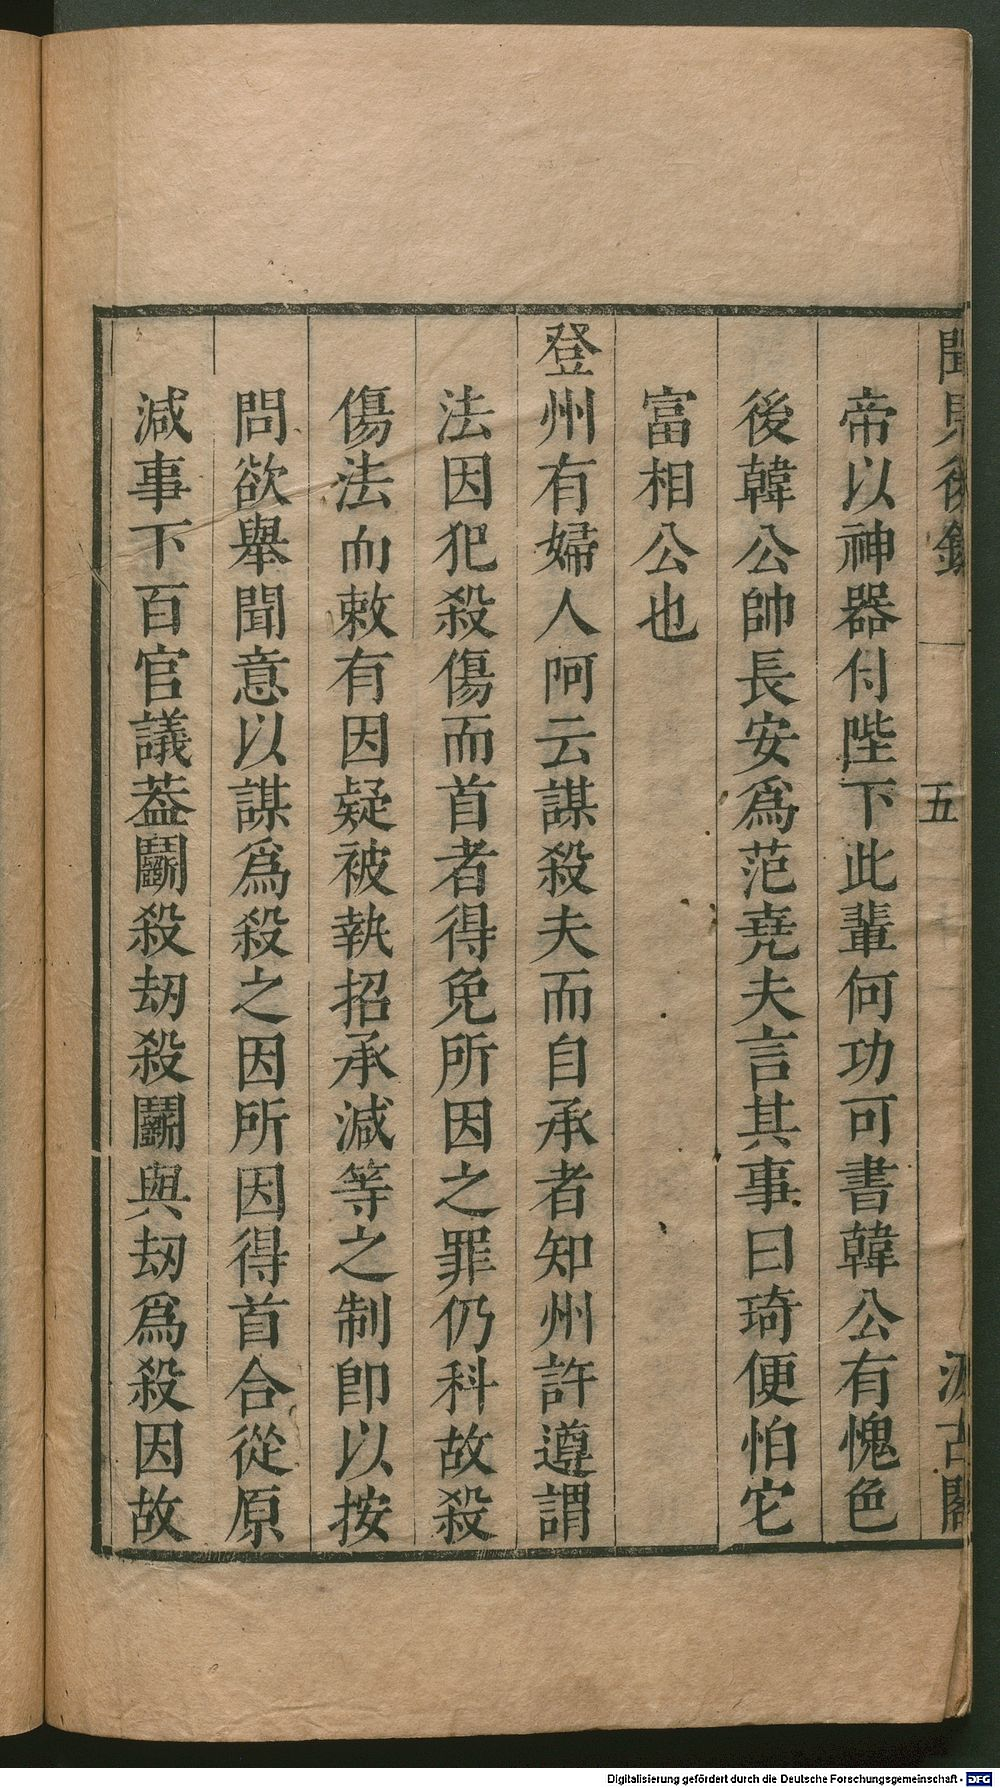 聞見後錄
五
汲古閣
帝以神器付陛下此輩何功可書韓公有愧色
後韓公帥長安爲范堯夫言其事曰琦便怕它
富相公也
登州有婦人阿云謀殺夫而自承者知州許遵謂
法因犯殺傷而首者得免所因之罪仍科故殺
傷法而敕有因疑被執招承減等之制卽以按
問欲舉聞意以謀爲殺之因所因得首合從原
減事下百官議葢鬭殺刼殺鬭與刼爲殺因故
Digitalisierung gefördert durch die Deutsche Forschungsgemeinschaft - DFG